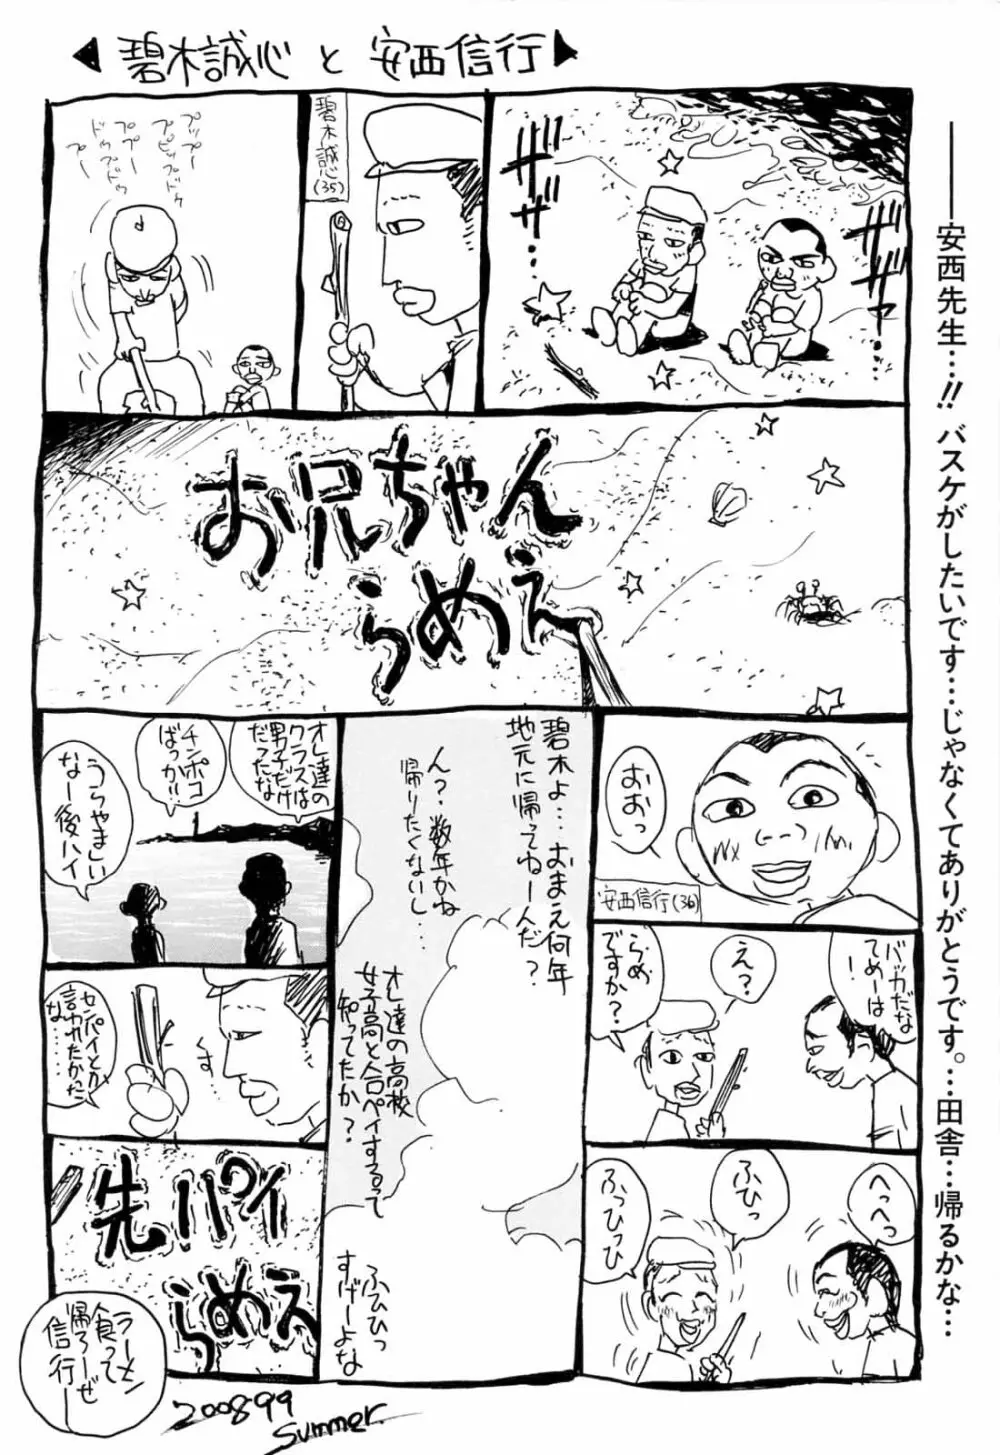 ◀ 碧木誠心 と 安西信行 ▶
ザザ
ザ…
ザザァ
…
碧木誠心
(35)
プップー
プピップドゥ
ププー
ドゥップドゥ
プー
お兄ちゃん
らめえ
おおっ
安西信行(36)
バカだな
てめーは
!
え?
らめ
ですか?
へっへっ
ふひっ
ふっひっひ
碧木よ…おまえ何年
地元に帰ってねー人だ?
ん?数年かね
帰りたくないし…
オレ達の高校
女子高と合ペイするって
知ってたか?
ふひひっ
すげーよな
オレ達の
クラスは
男子だけ
だったな
チンポコ
ばっか!!
うらやましい
なー後ハイ
す
センパイとか
言われたかった
な……
先パイ
らめえ
ラーメン
食って
帰ろーぜ
信行ー
2008.99
Summer.
――安西先生…!! バスケがしたいです…じゃなくてありがとうです。…田舎…帰るかな…